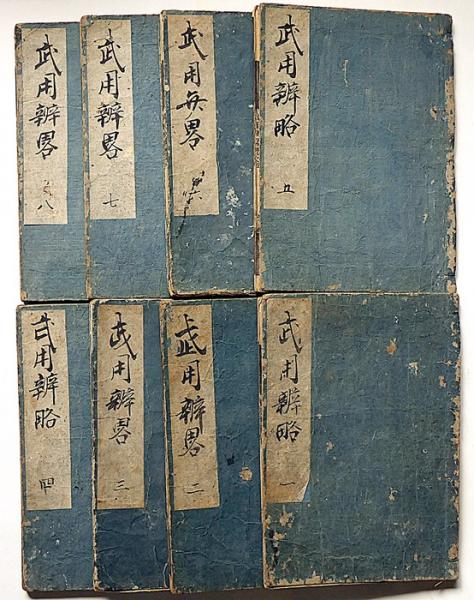 武用辨略 五
武用弁畧 六
武用辨畧 七
武用辨畧 八
武用辨略 一
武用辨畧 二
武用辨畧 三
武用辨略 四